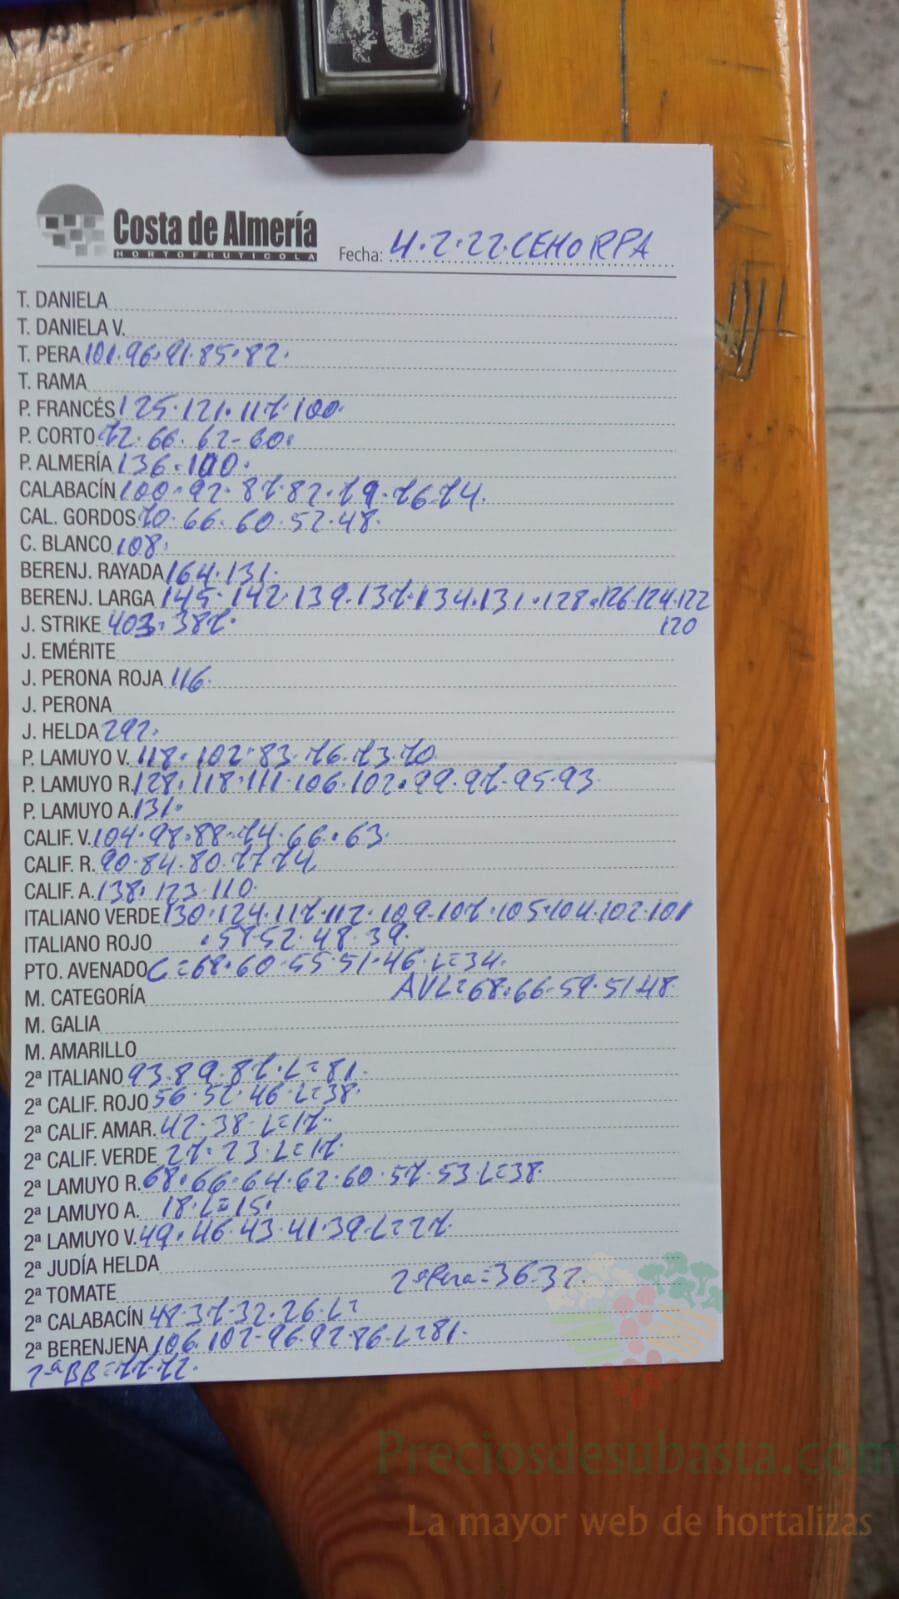 46
Costa de Almería
HORTOFRUTICOLA
Fecha: 4.2.22.CEHORPA
T. DANIELA
T. DANIELA V.
T. PERA 101.96.91.85.82.
T. RAMA
P. FRANCÉS 125.121.117.100.
P. CORTO 72.66.62-60.
P. ALMERÍA 136.100.
CALABACÍN 100.92.87.82.79.76.74.
CAL. GORDOS 70.66.60.52.48.
C. BLANCO 108.
BERENJ. RAYADA 164.131.
BERENJ. LARGA 145.142.139.137.134.131.128.126.124.122
J. STRIKE 403.387. 120
J. EMÉRITE
J. PERONA ROJA 116.
J. PERONA
J. HELDA 292.
P. LAMUYO V. 118.102.83.76.73.70
P. LAMUYO R. 128.118.111.106.102.99.97.95.93
P. LAMUYO A. 131.
CALIF. V. 104.98.88.74.66.63
CALIF. R. 90.84.80.77.74
CALIF. A. 138.123.110.
ITALIANO VERDE 130.124.117.112.109.107.105.104.102.101
ITALIANO ROJO .58 52.48.39.
PTO. AVENADO C=68.60.55.51.46.L=34.
M. CATEGORÍA AVL=68.66.59.51.48
M. GALIA
M. AMARILLO
2ª ITALIANO 93.89.87.L=81.
2ª CALIF. ROJO 56.52.46.L=38.
2ª CALIF. AMAR. 42.38.L=17.
2ª CALIF. VERDE 27.23.L=17.
2ª LAMUYO R. 68.66.64.62.60.57.53.L=38.
2ª LAMUYO A. 18.L=15.
2ª LAMUYO V. 49.46.43.41.39.L=27.
2ª JUDÍA HELDA
2ª TOMATE 2ª Pera=36.32.
2ª CALABACÍN 48.37.32.26.L=
2ª BERENJENA 106.102.96.92.86.L=81.
2ªBB=77.72.
Preciosdesubasta.com
La mayor web de hortalizas